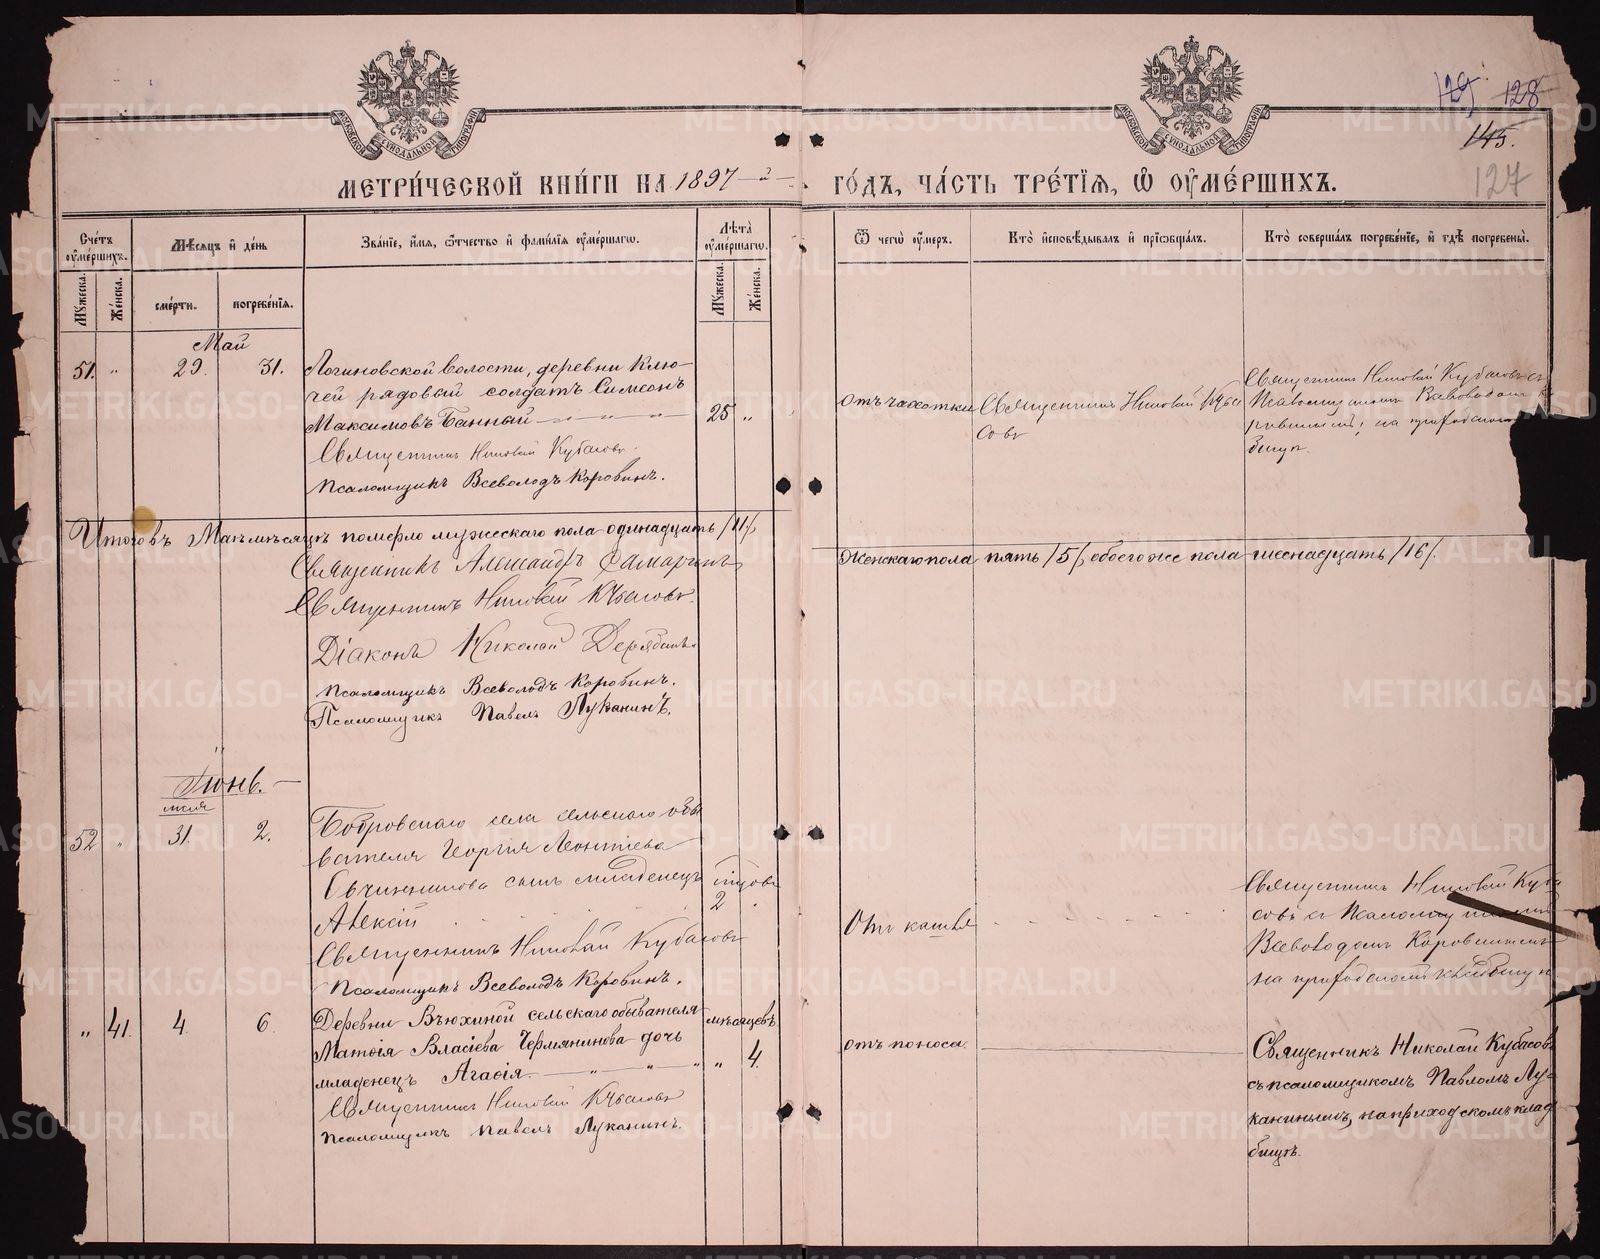 129 128
145.
127
МОСКОВСКОЙ СѴНОДАЛЬНОЙ ТИПОГРАФІИ
МОСКОВСКОЙ СѴНОДАЛЬНОЙ ТИПОГРАФІИ
МЕТРИ́ЧЕСКОЙ КНИ́ГИ НА 1897-й ГО́ДЪ, ЧА́СТЬ ТРЕ́ТІЯ, Ѡ ОУ҆МЕ́РШИХЪ.
Сче́тъ оу҆ме́ршихъ.
Мꙋ́жеска.
Же́нска.
Мѣ́сяцъ и҆ де́нь
сме́рти.
погребе́нія.
Зва́ніе, и҆́мя, ѻ҆́тчество и҆ фами́лія оу҆ме́ршагѡ.
Лѣ́та оу҆ме́ршагѡ.
Мꙋ́жеска.
Же́нска.
Ѿ чегѡ̀ оу҆́меръ.
Кто̀ и҆сповѣ́дывалъ и҆ прїѡбща́лъ.
Кто̀ соверша́лъ погребе́ніе, и҆ гдѣ̀ погребены̀.
Май
51. " 29. 31.
Логиновской волости, деревни Клю-
чей рядовой солдатъ Симеонъ
Максимовъ Банный
25 "
Священникъ Николай Кубасовъ.
Псаломщикъ Всеволодъ Коровинъ.
отъ чахотки
Священникъ Николай Куба
совъ
Священникъ Николай Кубасовъ съ
Псаломщикомъ Всеволодом Ко
ровинымъ, на приходском
бищѣ.
Итого въ Маѣ мѣсяцѣ померло мужескаго пола одинадцать /11/,
Женскаго пола пять /5/, обоего же пола шеснадцать /16/.
Священникъ Александръ
Священникъ Николай Кубасовъ.
Діаконъ Николай Дерябинъ
Псаломщикъ Всеволодъ Коровинъ.
Псаломщикъ Павелъ Луканинъ.
Іюнь.
мая
52 " 31. 2.
Бобровскаго села сельскаго обы
вателя Георгія Леонтіева
Овчинникова сынъ младенецъ
Алексій
годовъ
2 "
Священникъ Николай Кубасовъ
Псаломщикъ Всеволодъ Коровинъ.
Отъ кашля
Священникъ Николай Куба
совъ съ Псаломщикомъ
Всеволодомъ Коровинымъ
на приходскомъ кладбищѣ
" 41. 4. 6.
Деревни Вьюхиной сельскаго обывателя
Матѳія Власіева Чермянинова дочь
младенецъ Агаѳія.
мѣсяцевъ
" 4.
Священникъ Николай Кубасовъ
Псаломщикъ Павелъ Луканинъ.
отъ поноса.
Священникъ Николай Кубасовъ
съ псаломщикомъ Павломъ Лу-
канинымъ, на приходскомъ клад
бищѣ.
METRIKI.GASO-URAL.RU